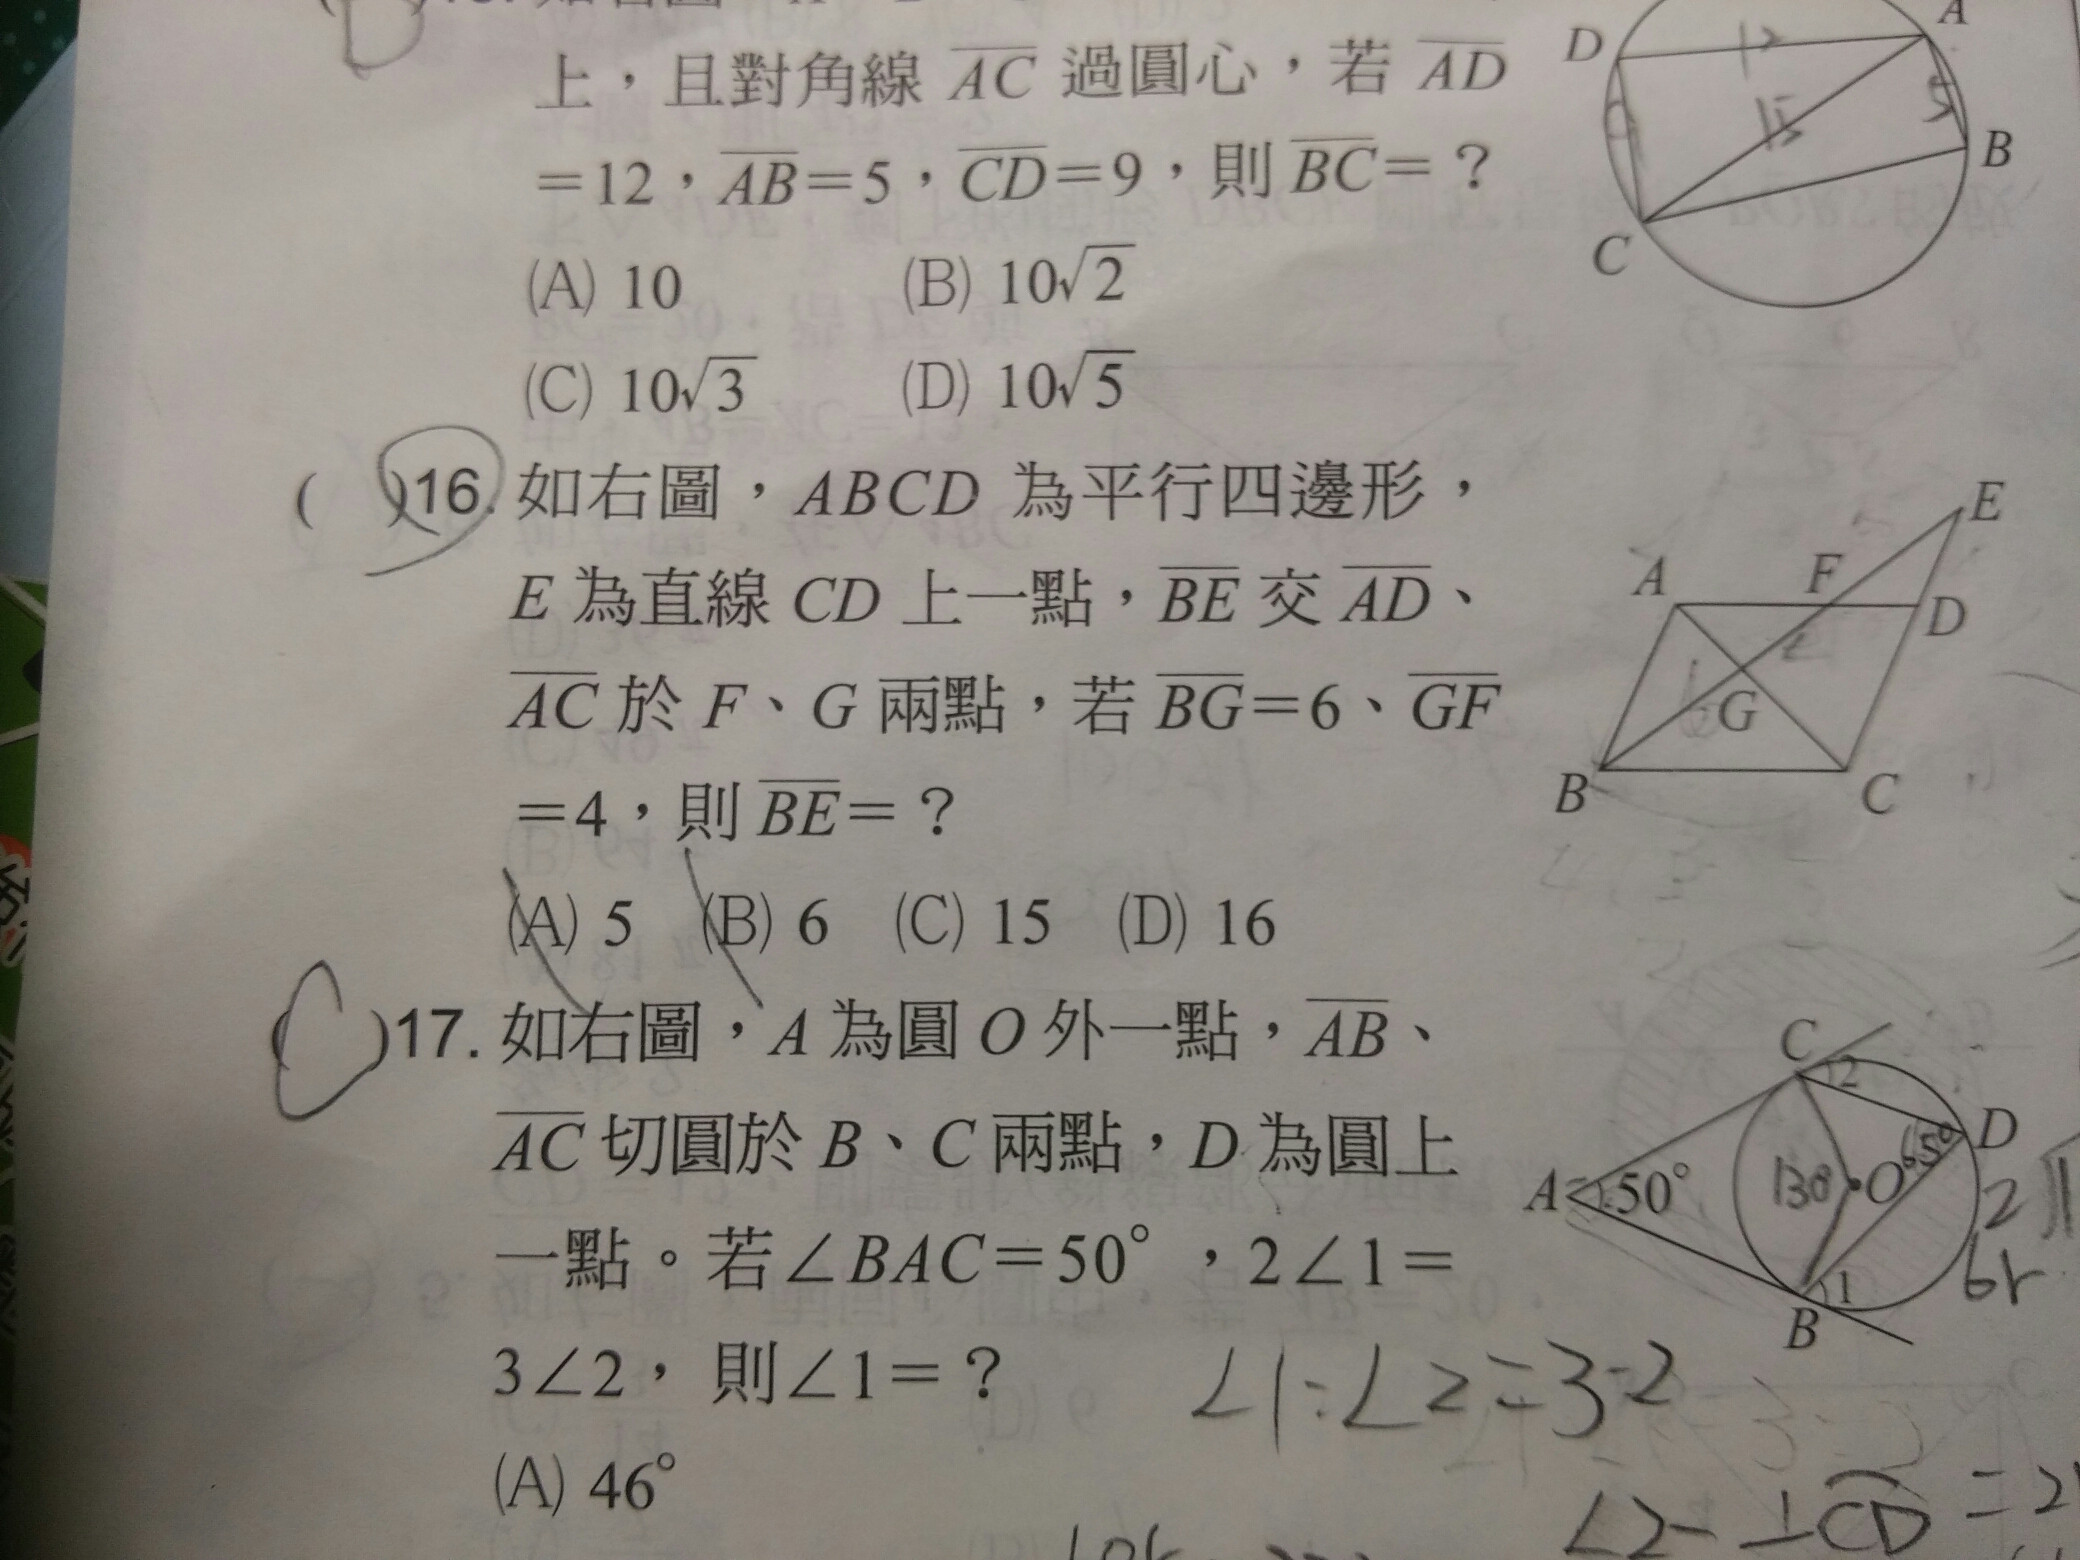 上，且對角線 AC 過圓心，若 AD
=12，AB=5，CD=9，則 BC=？
(A) 10 (B) 10√2
(C) 10√3 (D) 10√5
D A B C
12 15 5
( )16. 如右圖，ABCD 為平行四邊形，
E 為直線 CD 上一點，BE 交 AD、
AC 於 F、G 兩點，若 BG=6、GF
=4，則 BE=？
(A) 5 (B) 6 (C) 15 (D) 16
E A F D G B C
(C)17. 如右圖，A 為圓 O 外一點，AB、
AC 切圓於 B、C 兩點，D 為圓上
一點。若∠BAC=50°，2∠1=
3∠2，則∠1=？
(A) 46°
C 2 D A 50° 130° O 65° B 1
∠1:∠2=3:2